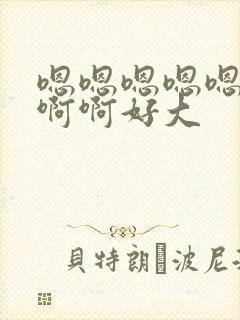 嗯嗯嗯嗯嗯
啊啊好大
貝特朗·波尼